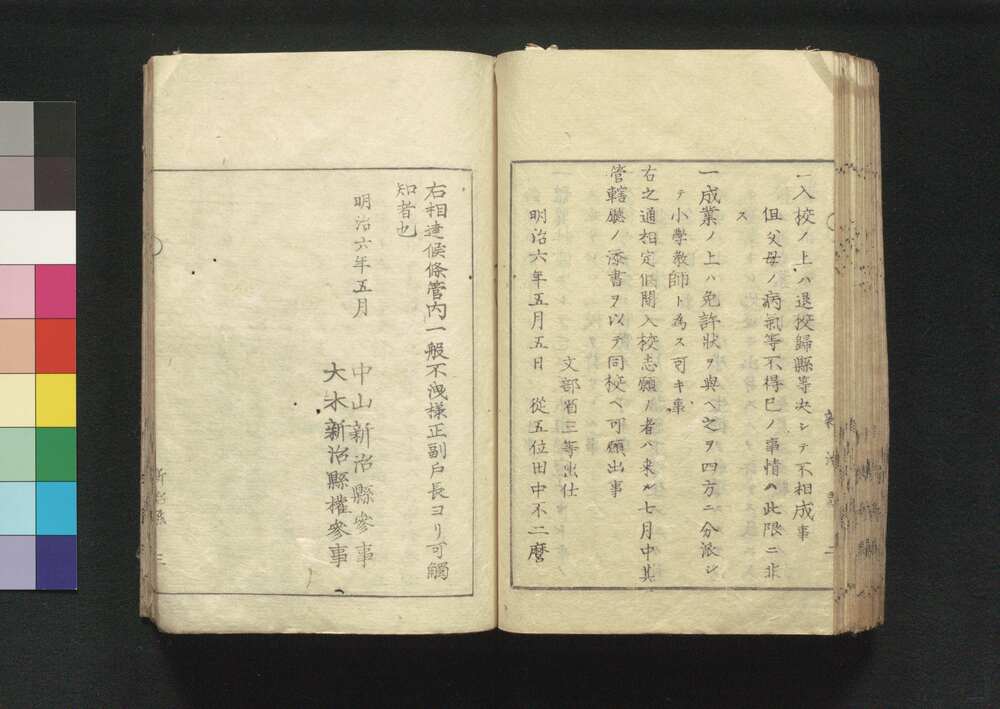 一入校ノ上ハ退校歸縣等決シテ不相成事
但父母ノ病氣等不得已ノ事情ハ此限ニ非
ス
一成業ノ上ハ免許狀ヲ與ヘ之ヲ四方ニ分派シ
テ小學敎師ト爲ス可キ事
右之通相定候間入校志願ノ者ハ来ル七月中其
管轄廳ノ添書ヲ以テ同校ヘ可願出事
文部省三等出仕
明治六年五月五日 從五位田中不二麿
右相達候條管内一般不洩樣正副戸長ヨリ可觸
知者也
明治六年五月
中山新治縣參事
大木新治縣權參事